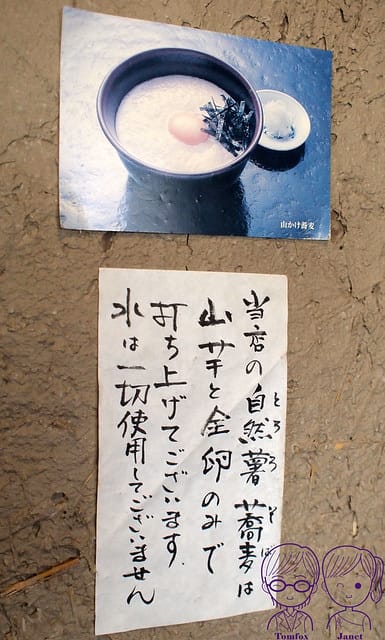 山かけ蕎麦
当店の自然薯蕎麦は
とろろそば
山芋と全卵のみで
打ち上げてございます.
水は一切使用してございません
Tomfox
Janet